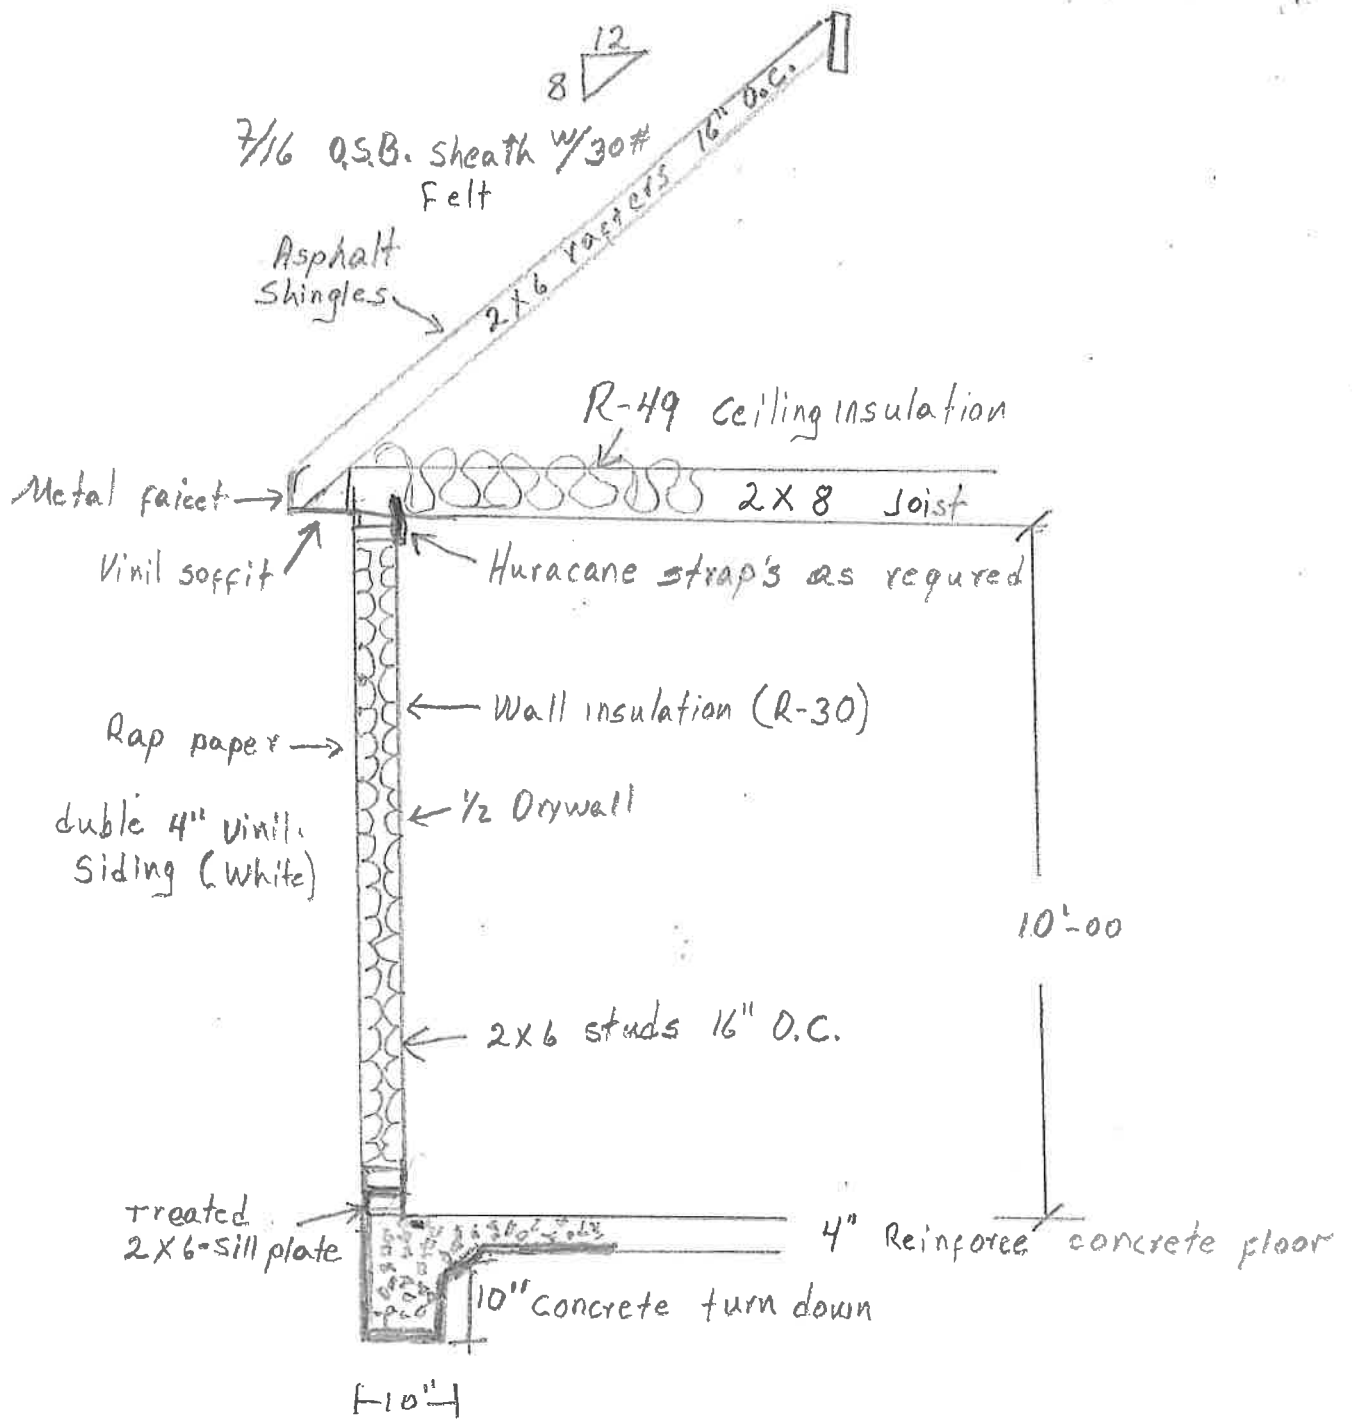 12
8
7/16 O.S.B. sheath w/30#
Felt
2x6 rafters 16" O.C.
Asphalt
Shingles
R-49 Ceiling insulation
Metal faicet
2x8 Joist
Vinil soffit
Huracane strap's as requred
Wall insulation (R-30)
Rap paper
1/2 Drywall
duble 4" Vinil.
Siding (White)
10'-00
2x6 studs 16" O.C.
Treated
2x6-Sill plate
4" Reinforce concrete floor
10" Concrete turn down
10"